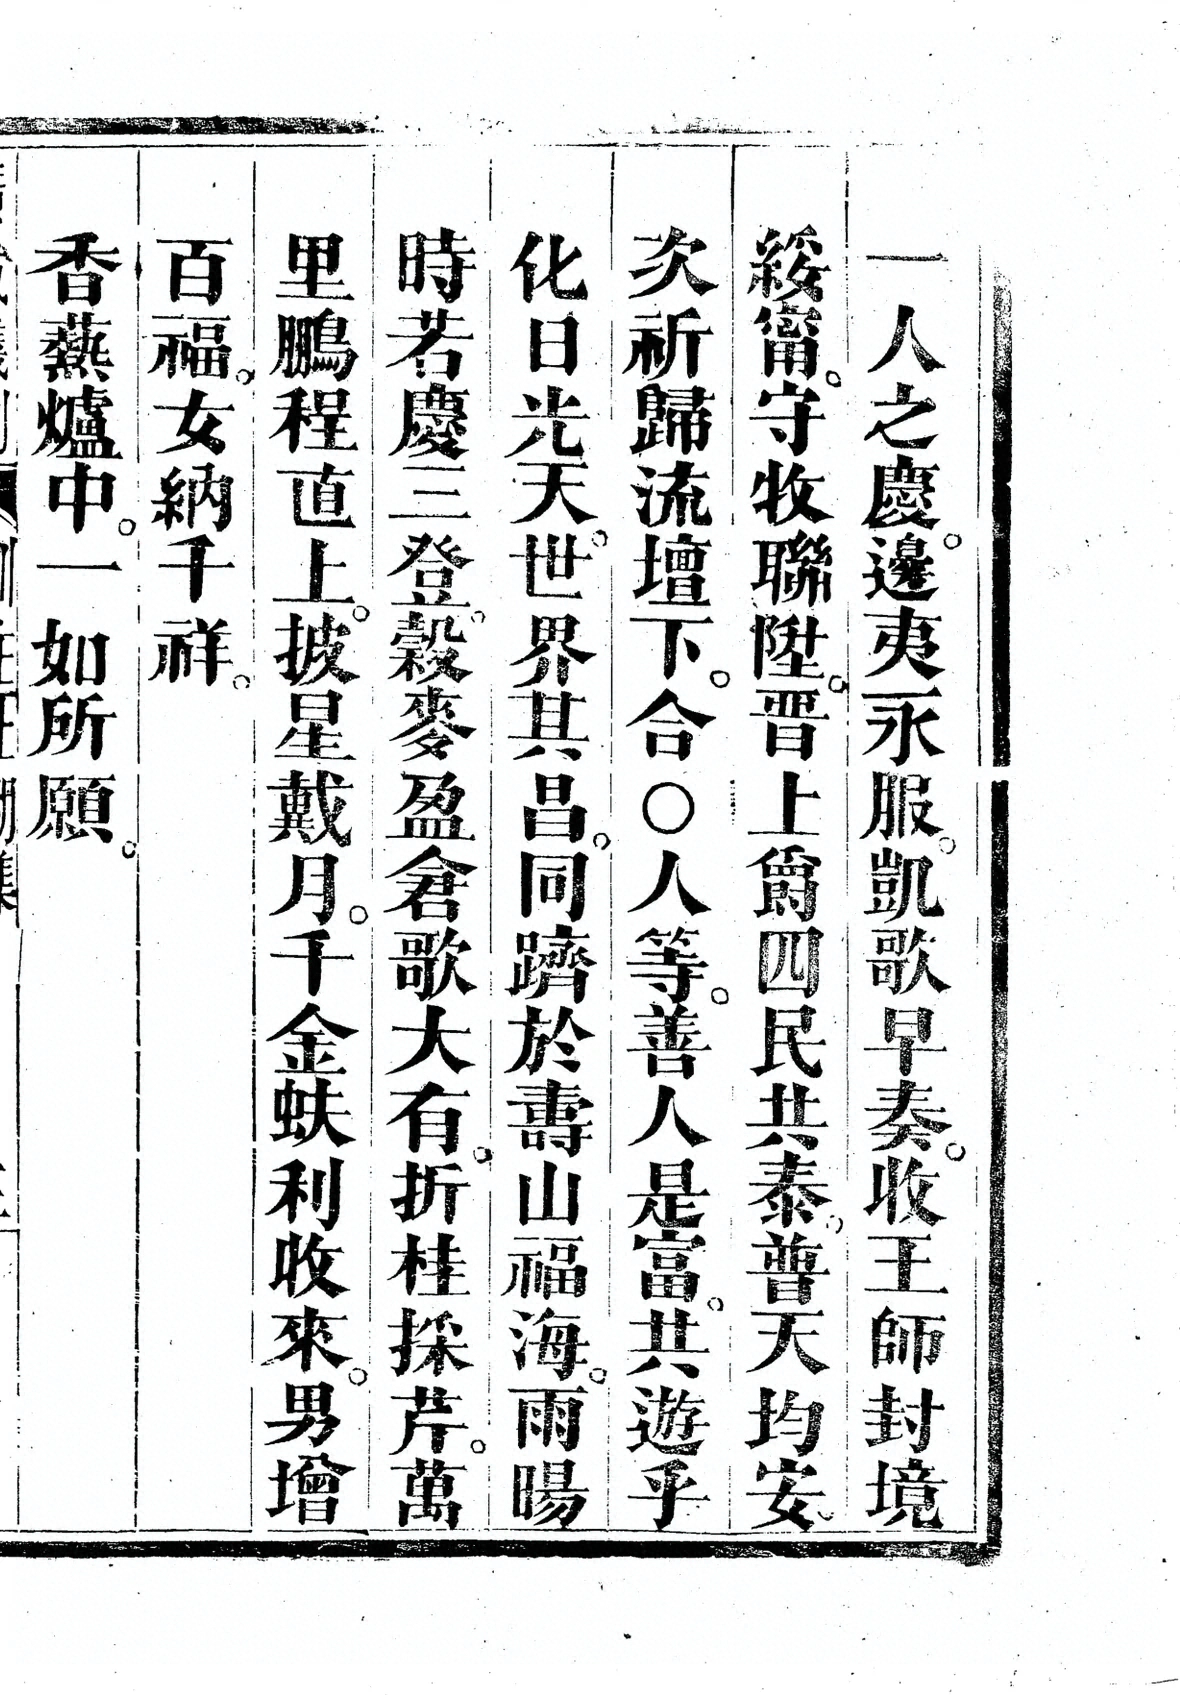 一人之慶。邊夷永服。凱歌早奏。收王師封境
綏甯。守牧聯陞。晋上爵四民共泰。普天均安。
次祈歸流壇下。合○人等。善人是富。共遊乎
化日光天。世界其昌。同躋於壽山福海。雨暘
時若慶三登。穀麥盈倉歌大有。折桂採芹。萬
里鵬程直上。披星戴月。千金蚨利收來。男增
百福。女納千祥。
香爇爐中。一如所願。